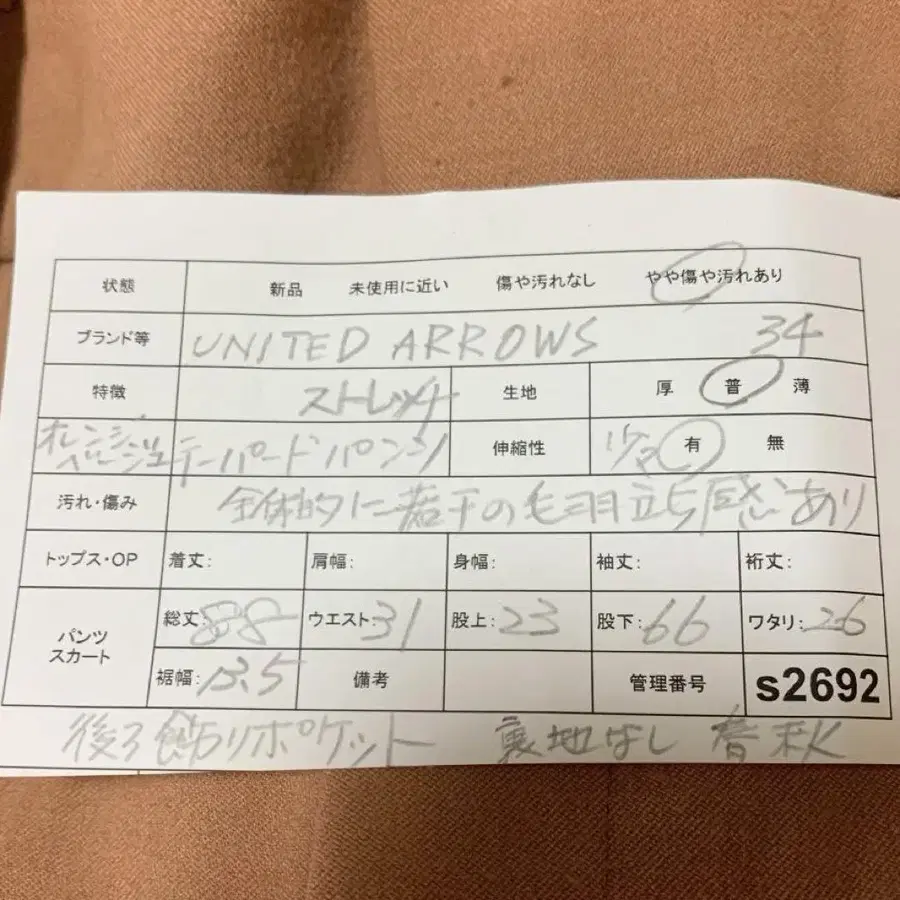 状態 新品 未使用に近い 傷や汚れなし やや傷や汚れあり
ブランド等 UNITED ARROWS 34
特徴 ストレッチ 生地 厚 普 薄
オレンジ
ベージュ テーパードパンツ 伸縮性 少々 有 無
汚れ・傷み 全体的に若干の毛羽立ち感あり
トップス・OP 着丈: 肩幅: 身幅: 袖丈: 裄丈:
パンツ
スカート
総丈: 88 ウエスト: 31 股上: 23 股下: 66 ワタリ: 26
裾幅: 13.5 備考 管理番号 s2692
後ろ飾りポケット 裏地なし 春秋